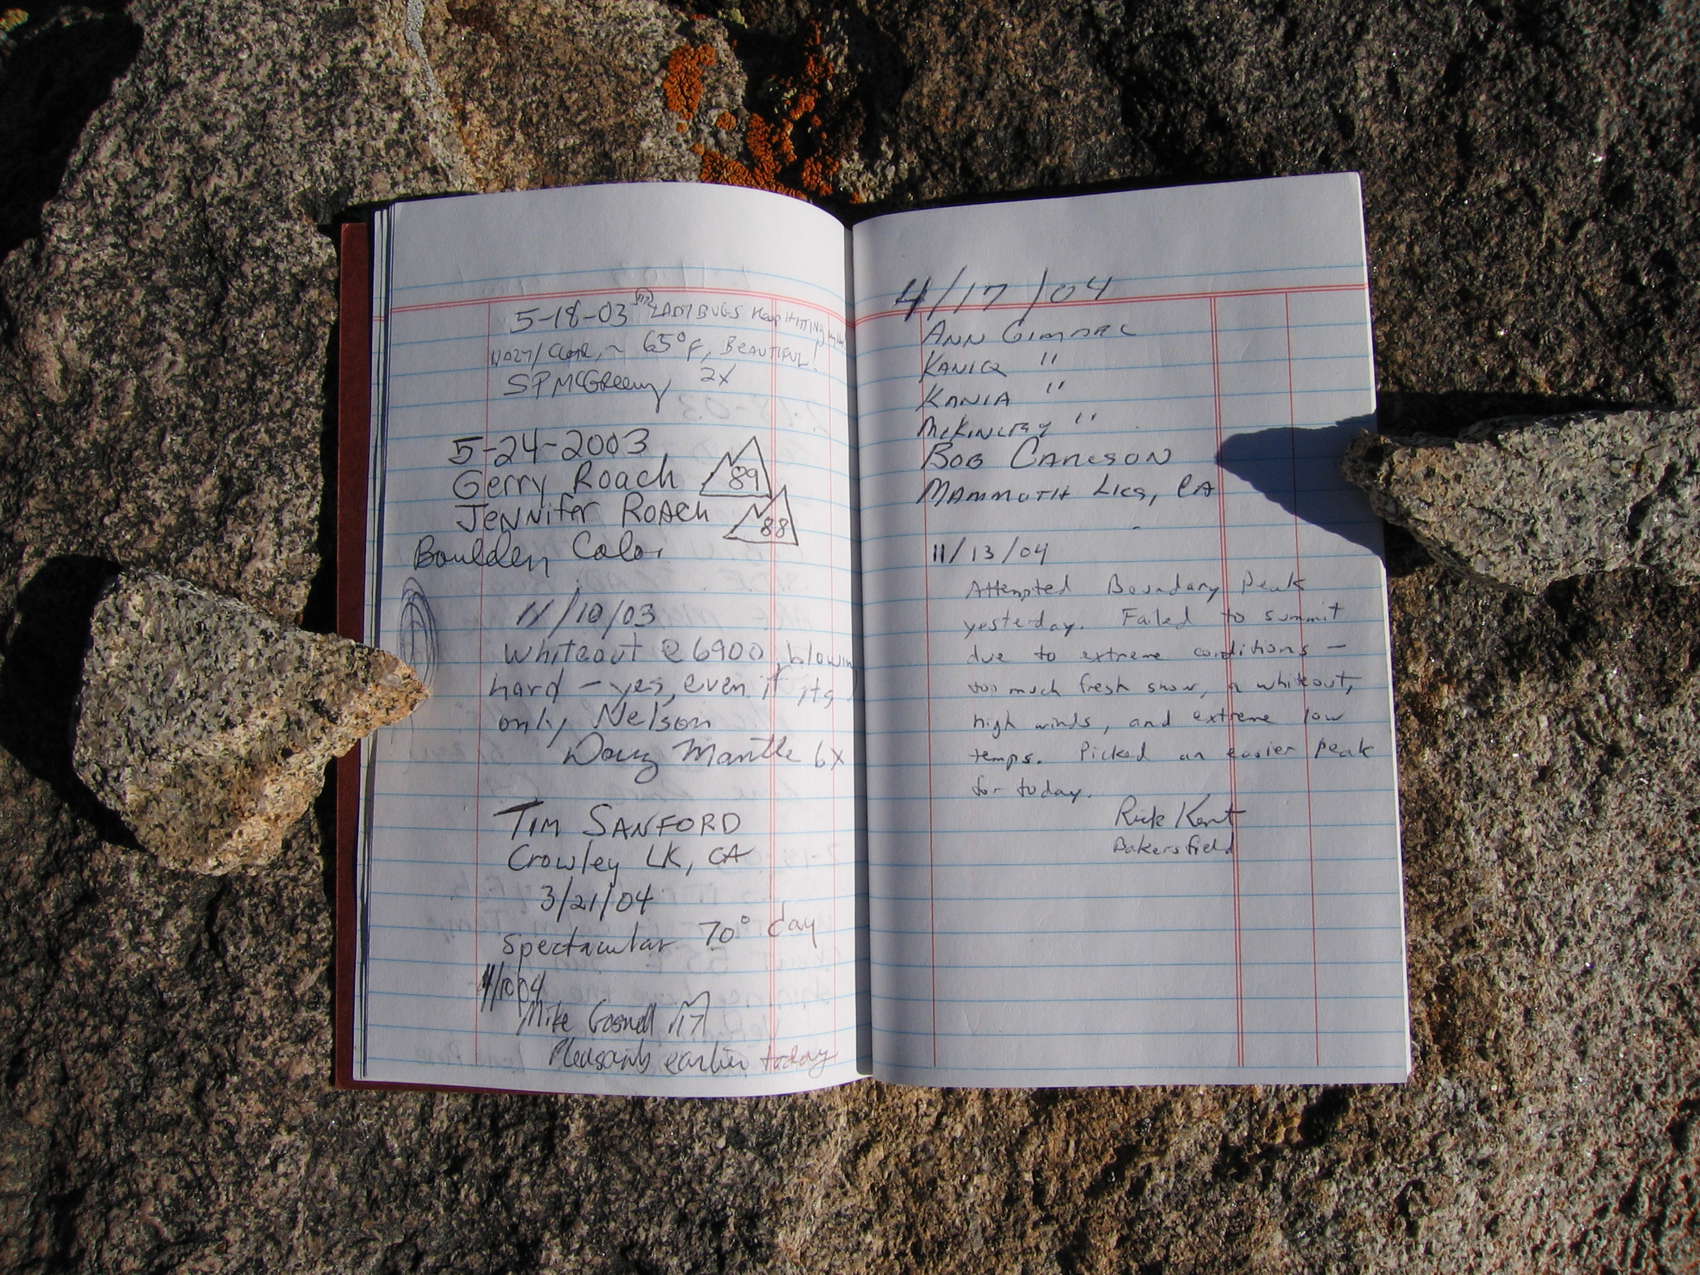 5-18-03 LADYBUGS Keep HITTING
HAZY/ ~ 65°F, BEAUTIFUL!
SPMcGreevy 2x
5-24-2003
Gerry Roach 89
Jennifer Roach 88
Boulder Color
11/10/03
Whiteout @ 6900, blowin
hard - yes, even if its
only Nelson
Doug Mantle 6x
Tim Sanford
Crowley LK, CA
3/21/04
spectacular 70° day
4/10/04
Mike Gosnell
Pleasants earlier today
4/17/04
Ann
"
Kania "
McKinley "
Bob Carlson
Mammoth Lks, CA
11/13/04
Attempted Boundary Peak
yesterday. Failed to summit
due to extreme conditions –
too much fresh snow, a whiteout,
high winds, and extreme low
temps. Picked an easier peak
for today.
Rick Kent
Bakersfield